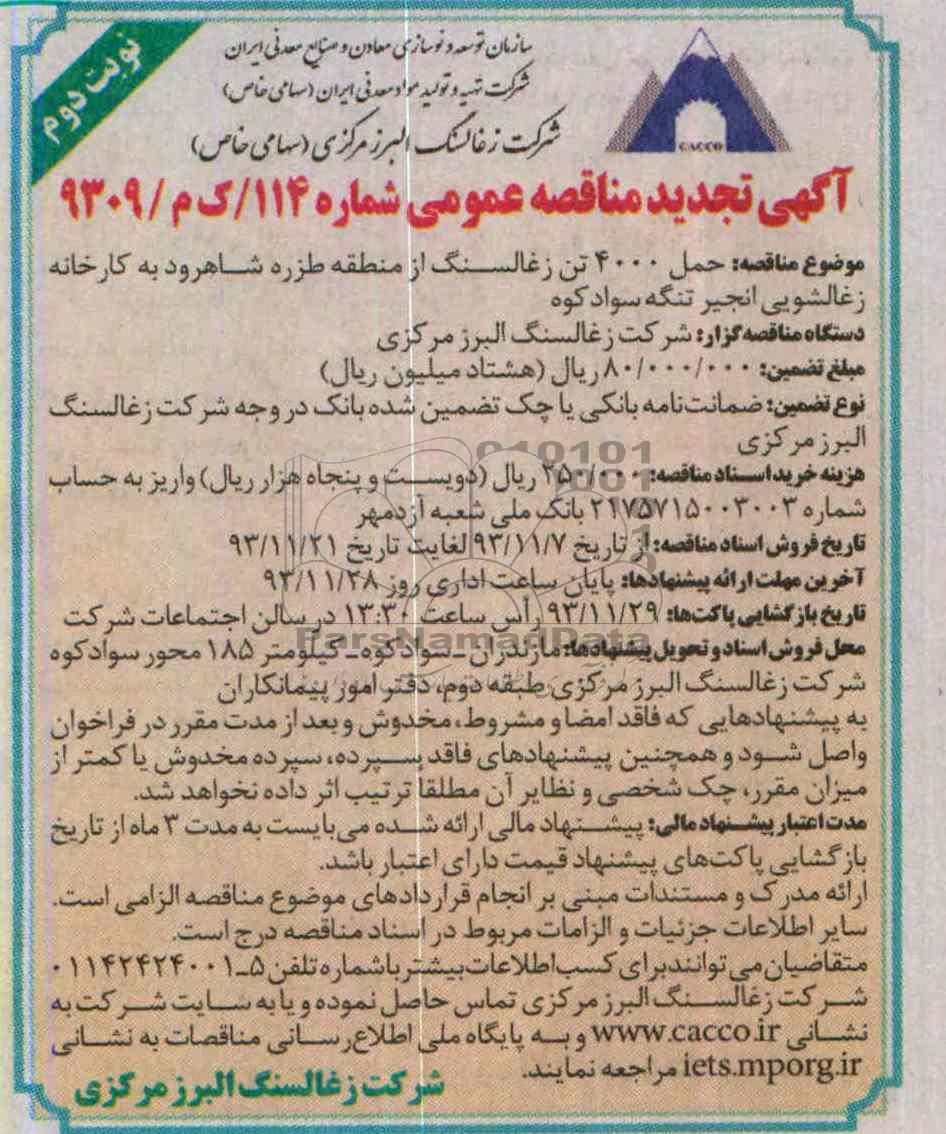 نوبت دوم
سازمان توسعه و نوسازی معادن و صنایع معدنی ایران
شرکت تهیه و تولید مواد معدنی ایران (سهامی خاص)
شرکت زغالسنگ البرز مرکزی (سهامی خاص)
CACCO
آگهی تجدید مناقصه عمومی شماره ۱۱۴/ک م/۹۳۰۹
موضوع مناقصه: حمل ۴۰۰۰ تن زغالسنگ از منطقه طزره شاهرود به کارخانه
زغالشویی انجیر تنگه سوادکوه
دستگاه مناقصه‌گزار: شرکت زغالسنگ البرز مرکزی
مبلغ تضمین: ۸۰/۰۰۰/۰۰۰ ریال (هشتاد میلیون ریال)
نوع تضمین: ضمانت‌نامه بانکی یا چک تضمین شده بانک در وجه شرکت زغالسنگ
البرز مرکزی
هزینه خرید اسناد مناقصه: ۲۵۰/۰۰۰ ریال (دویست و پنجاه هزار ریال) واریز به حساب
شماره ۲۱۷۵۷۱۵۰۰۳۰۰۳ بانک ملی شعبه آزدمهر
تاریخ فروش اسناد مناقصه: از تاریخ ۹۳/۱۱/۷ لغایت تاریخ ۹۳/۱۱/۲۱
آخرین مهلت ارائه پیشنهادها: پایان ساعت اداری روز ۹۳/۱۱/۲۸
تاریخ بازگشایی پاکت‌ها: ۹۳/۱۱/۲۹ رأس ساعت ۱۳:۳۰ در سالن اجتماعات شرکت
محل فروش اسناد و تحویل پیشنهادها: مازندران ـ سوادکوه ـ کیلومتر ۱۸۵ محور سوادکوه
شرکت زغالسنگ البرز مرکزی طبقه دوم، دفتر امور پیمانکاران
به پیشنهادهایی که فاقد امضا و مشروط، مخدوش و بعد از مدت مقرر در فراخوان
واصل شود و همچنین پیشنهادهای فاقد سپرده، سپرده مخدوش یا کمتر از
میزان مقرر، چک شخصی و نظایر آن مطلقا ترتیب اثر داده نخواهد شد.
مدت اعتبار پیشنهاد مالی: پیشنهاد مالی ارائه شده می‌بایست به مدت ۳ ماه از تاریخ
بازگشایی پاکت‌های پیشنهاد قیمت دارای اعتبار باشد.
ارائه مدرک و مستندات مبنی بر انجام قراردادهای موضوع مناقصه الزامی است.
سایر اطلاعات جزئیات و الزامات مربوط در اسناد مناقصه درج است.
متقاضیان می‌توانند برای کسب اطلاعات بیشتر با شماره تلفن ۵ـ۰۱۱۴۲۴۲۴۰۰۱
شرکت زغالسنگ البرز مرکزی تماس حاصل نموده و یا به سایت شرکت به
نشانی www.cacco.ir و به پایگاه ملی اطلاع‌رسانی مناقصات به نشانی
iets.mporg.ir مراجعه نمایند.
شرکت زغالسنگ البرز مرکزی
ParsNamadData